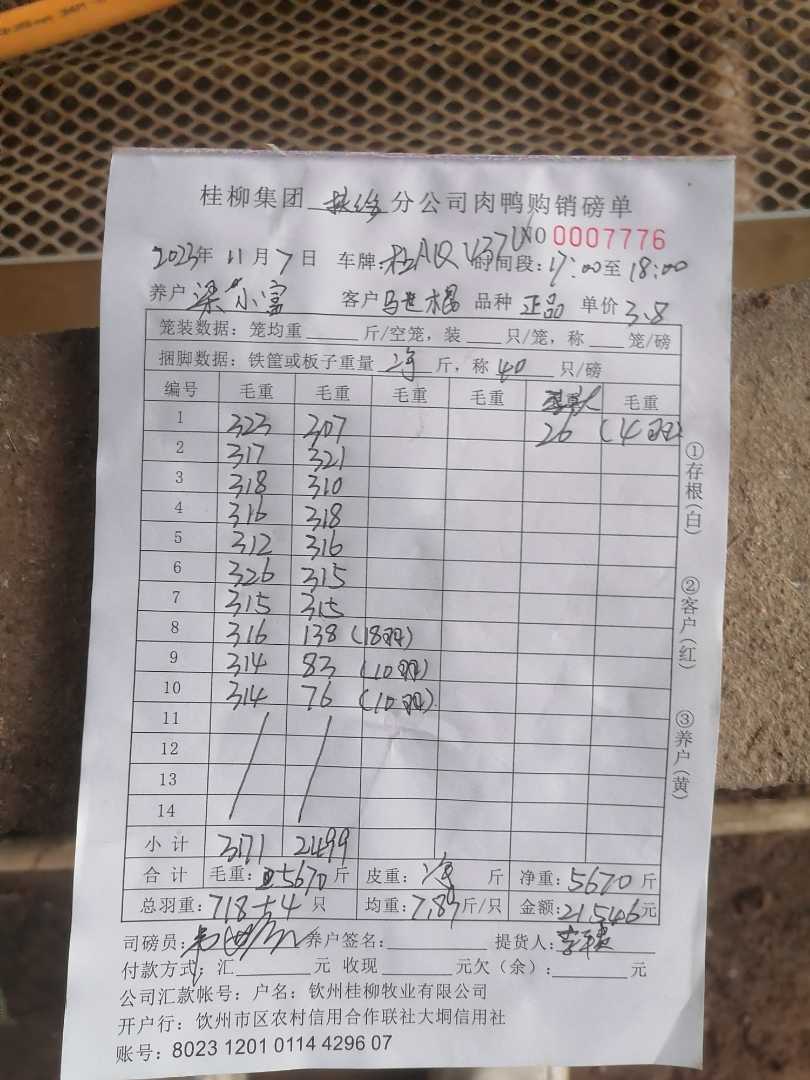 桂柳集团 分公司肉鸭购销磅单
NO 0007776
2023年 11月 7日 车牌: 时间段:17:00至18:00
养户 梁小富 客户 马世根 品种 正品 单价 3.8
笼装数据: 笼均重 斤/空笼, 装 只/笼, 称 笼/磅
捆脚数据: 铁筐或板子重量 净 斤, 称 40 只/磅
编号 毛重 毛重 毛重 毛重 毛重
1 323 307 26 (4羽)
2 317 321
3 318 310
4 316 318
5 312 316
6 326 315
7 315 315
8 316 138 (18羽)
9 314 83 (10羽)
10 314 76 (10羽)
11
12
13
14
小计 3171 2499
合计 毛重: 5670 斤 皮重: 净 斤 净重: 5670 斤
总羽重: 718+4 只 均重: 7.89 斤/只 金额: 21546 元
司磅员: 养户签名: 提货人:
付款方式: 汇 元 收现 元欠(余): 元
公司汇款帐号: 户名: 钦州桂柳牧业有限公司
开户行: 钦州市区农村信用合作联社大垌信用社
账号: 8023 1201 0114 4296 07
①存根(白)
②客户(红)
③养户(黄)